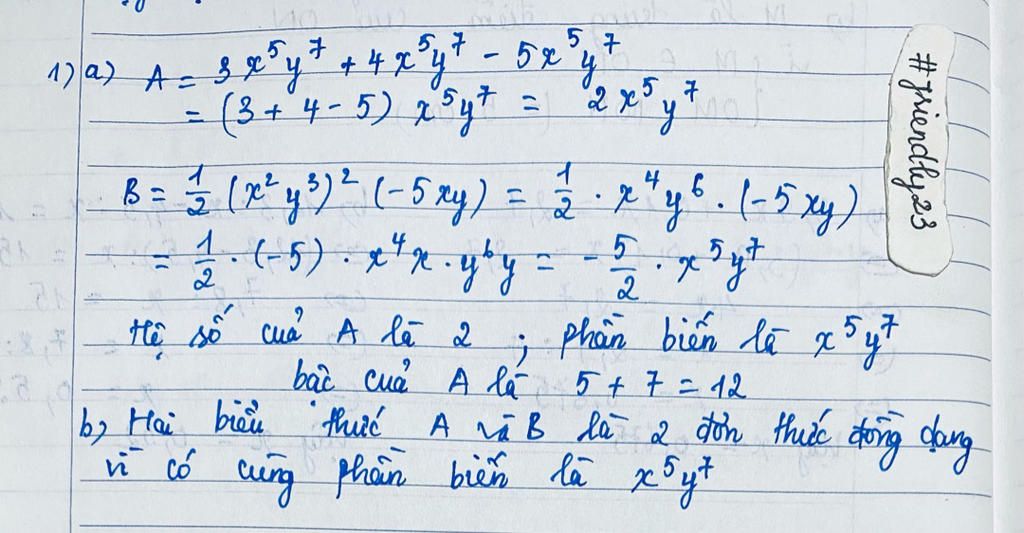 1) a) A = 3x⁵y⁷ + 4x⁵y⁷ - 5x⁵y⁷
= (3 + 4 - 5) x⁵y⁷ = 2x⁵y⁷
B = 1/2 (x²y³)² (-5xy) = 1/2 · x⁴y⁶ · (-5xy)
= 1/2 · (-5) · x⁴x · y⁶y = -5/2 · x⁵y⁷
Hệ số của A là 2 ; phần biến là x⁵y⁷
bậc của A là 5 + 7 = 12
b) Hai biểu thức A và B là 2 đơn thức đồng dạng
vì có cùng phần biến là x⁵y⁷
#friendly23